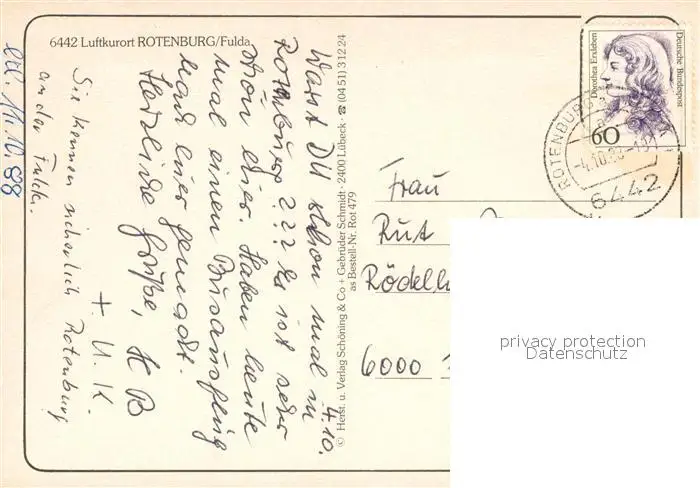 6442 Luftkurort ROTENBURG/Fulda
4.10.
Warst DU schon mal in
Rotenburg ??? Es ist sehr
schön hier. Haben heute
mal einen Busausflug
nach hier gemacht.
Herzliche Grüße, HB
+ U. K.
Sie kennen sicherlich Rotenburg
an der Fulda.
erl. 11.10.88
© Herst. u. Verlag Schöning & Co + Gebrüder Schmidt · 2400 Lübeck · ☎ (0451) 31224
as Bestell-Nr. Rot 479
Dorothea Erxleben
Deutsche Bundespost
60
ROTENBURG
-4.10.88
6442
Frau
Rut
Rödelh
6000
privacy protection
Datenschutz